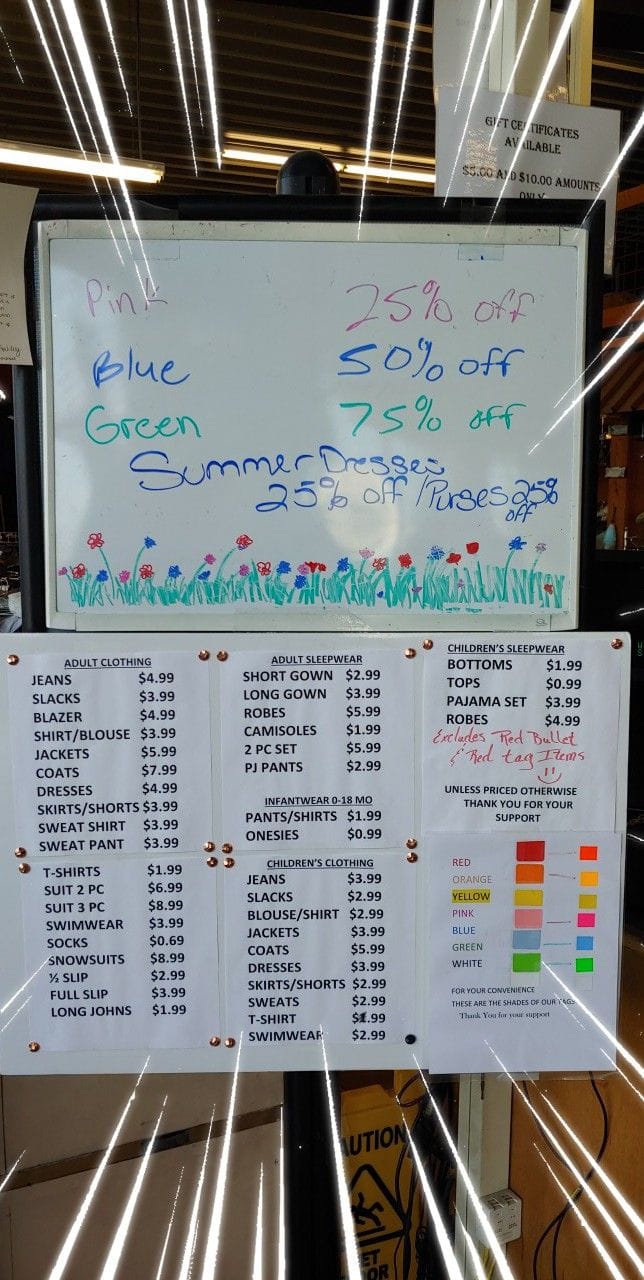 GIFT CERTIFICATES
AVAILABLE
$5.00 AND $10.00 AMOUNTS
ONLY
Pink 25% off
Blue 50% off
Green 75% off
Summer Dresses
25% off / Purses 25%
off
ADULT CLOTHING
JEANS $4.99
SLACKS $3.99
BLAZER $4.99
SHIRT/BLOUSE $3.99
JACKETS $5.99
COATS $7.99
DRESSES $4.99
SKIRTS/SHORTS $3.99
SWEAT SHIRT $3.99
SWEAT PANT $3.99
T-SHIRTS $1.99
SUIT 2 PC $6.99
SUIT 3 PC $8.99
SWIMWEAR $3.99
SOCKS $0.69
SNOWSUITS $8.99
½ SLIP $2.99
FULL SLIP $3.99
LONG JOHNS $1.99
ADULT SLEEPWEAR
SHORT GOWN $2.99
LONG GOWN $3.99
ROBES $5.99
CAMISOLES $1.99
2 PC SET $5.99
PJ PANTS $2.99
INFANTWEAR 0-18 MO
PANTS/SHIRTS $1.99
ONESIES $0.99
CHILDREN'S CLOTHING
JEANS $3.99
SLACKS $2.99
BLOUSE/SHIRT $2.99
JACKETS $3.99
COATS $5.99
DRESSES $3.99
SKIRTS/SHORTS $2.99
SWEATS $2.99
T-SHIRT $1.99
SWIMWEAR $2.99
CHILDREN'S SLEEPWEAR
BOTTOMS $1.99
TOPS $0.99
PAJAMA SET $3.99
ROBES $4.99
Excludes Red Bullet
& Red tag Items
UNLESS PRICED OTHERWISE
THANK YOU FOR YOUR
SUPPORT
RED
ORANGE
YELLOW
PINK
BLUE
GREEN
WHITE
FOR YOUR CONVENIENCE
THESE ARE THE SHADES OF OUR TAGS
Thank You for your support
AUTION
ET
OOR